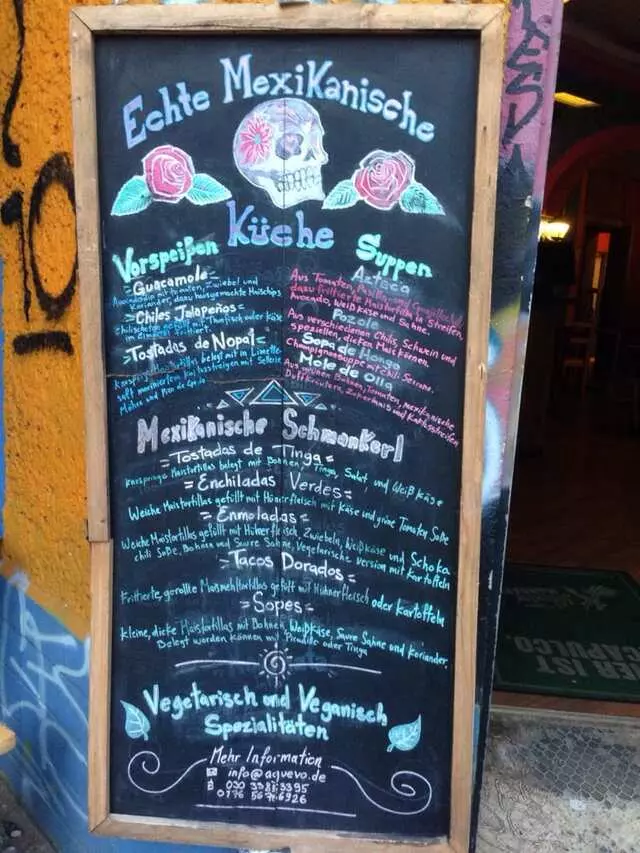 Echte Mexikanische
Küche
Vorspeißen
=Guacamole=
Avocadodip mit tomaten, Zwiebel und
Koriander, dazu hausgemachte Maischips
=Chiles Jalapeños=
chilischoten gefüllt mit Thunfisch oder käse
im
=Tostadas de Nopal=
knusprige Maistortillas belegt mit in Limette
saft marinierten Kaktusstreifen mit Sellerie
Möhre und Pico de Gallo
Suppen
Azteca
Aus Tomaten, Paprika und
dazu frittierte Maistortilla in Streifen,
Avocado, Weißkäse und Sahne.
Pozole
Aus verschiedenen Chilis, Schwein und
speziellen, dicken Mais körnern.
Sopa de Hongo
Champignonsuppe mit chili Serrano.
Mole de Olla
Aus grünen Bohnen, Tomaten, mexikanische
Duftkräutern, Zuckermais und Kaktusstreifen
Mexikanische Schmankerl
=Tostadas de Tinga=
knusprige Maistortillas belegt mit Bohnen, Tinga, Salat, und Weiß käse
=Enchiladas Verdes=
Weiche Maistortillas gefüllt mit Hünerfleisch mit käse und grüne Tomaten Soße
=Enmoladas=
Weiche Maistortillas gefüllt mit Hünerfleisch, Zwiebeln, Weißkäse und Schoka
chili Soße, Bohnen und Saure Sahne, Vegetarische version mit Kartoffeln
=Tacos Dorados=
Frittierte, gerollte Maismehltortillas gefüllt mit Hühnerfleisch oder Kartoffeln
=Sopes=
kleine, dicke Maistortillas mit Bohnen, Weißkäse, Saure Sahne und Koriander.
Belegt werden können mit Picadillo oder Tinga
Vegetarisch und Veganisch
Spezialitäten
Mehr Information
info@aquevo.de
030 3381 3395
0176 5671 6926
ER IST
CAPULCO.